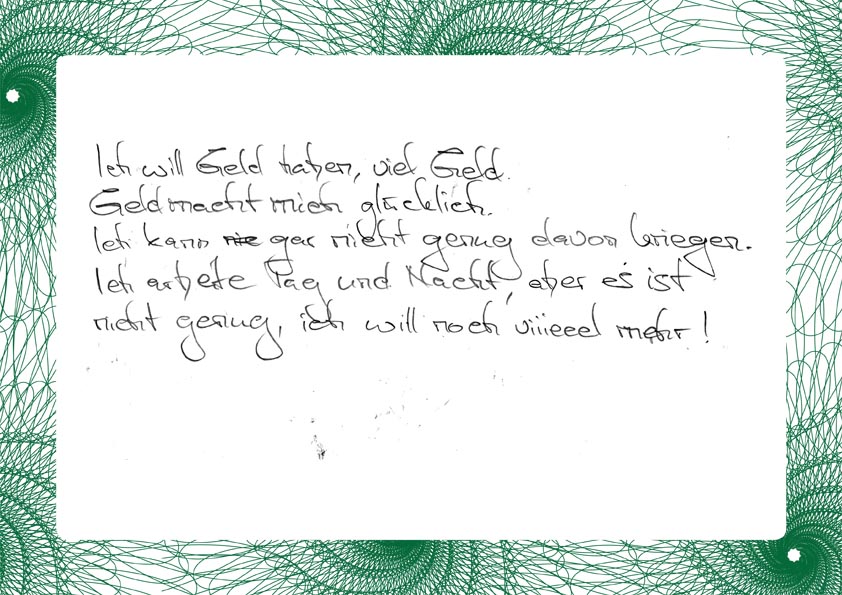 Ich will Geld haben, viel Geld.
Geld macht mich glücklich.
Ich kann nie gar nicht genug davon kriegen.
Ich arbeite Tag und Nacht, aber es ist
nicht genug, ich will noch viiieeel mehr!